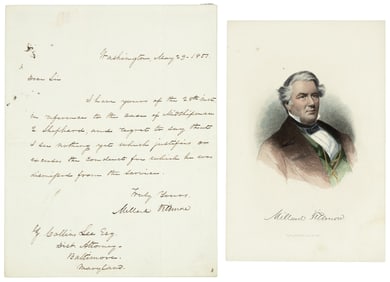 Washington, May 29, 1851.
Dear Sir
I have yours of the 28th inst.
in reference to the case of Midshipman
E Shepherd, and regret to say that
I see nothing yet which justifies or
excuses the conduct for which he was
dismissed from the service.
Truly Yours
Millard Fillmore
Z. Collins Lee Esq.
Dist Attorney
Baltimore
Maryland.
Millard Fillmore